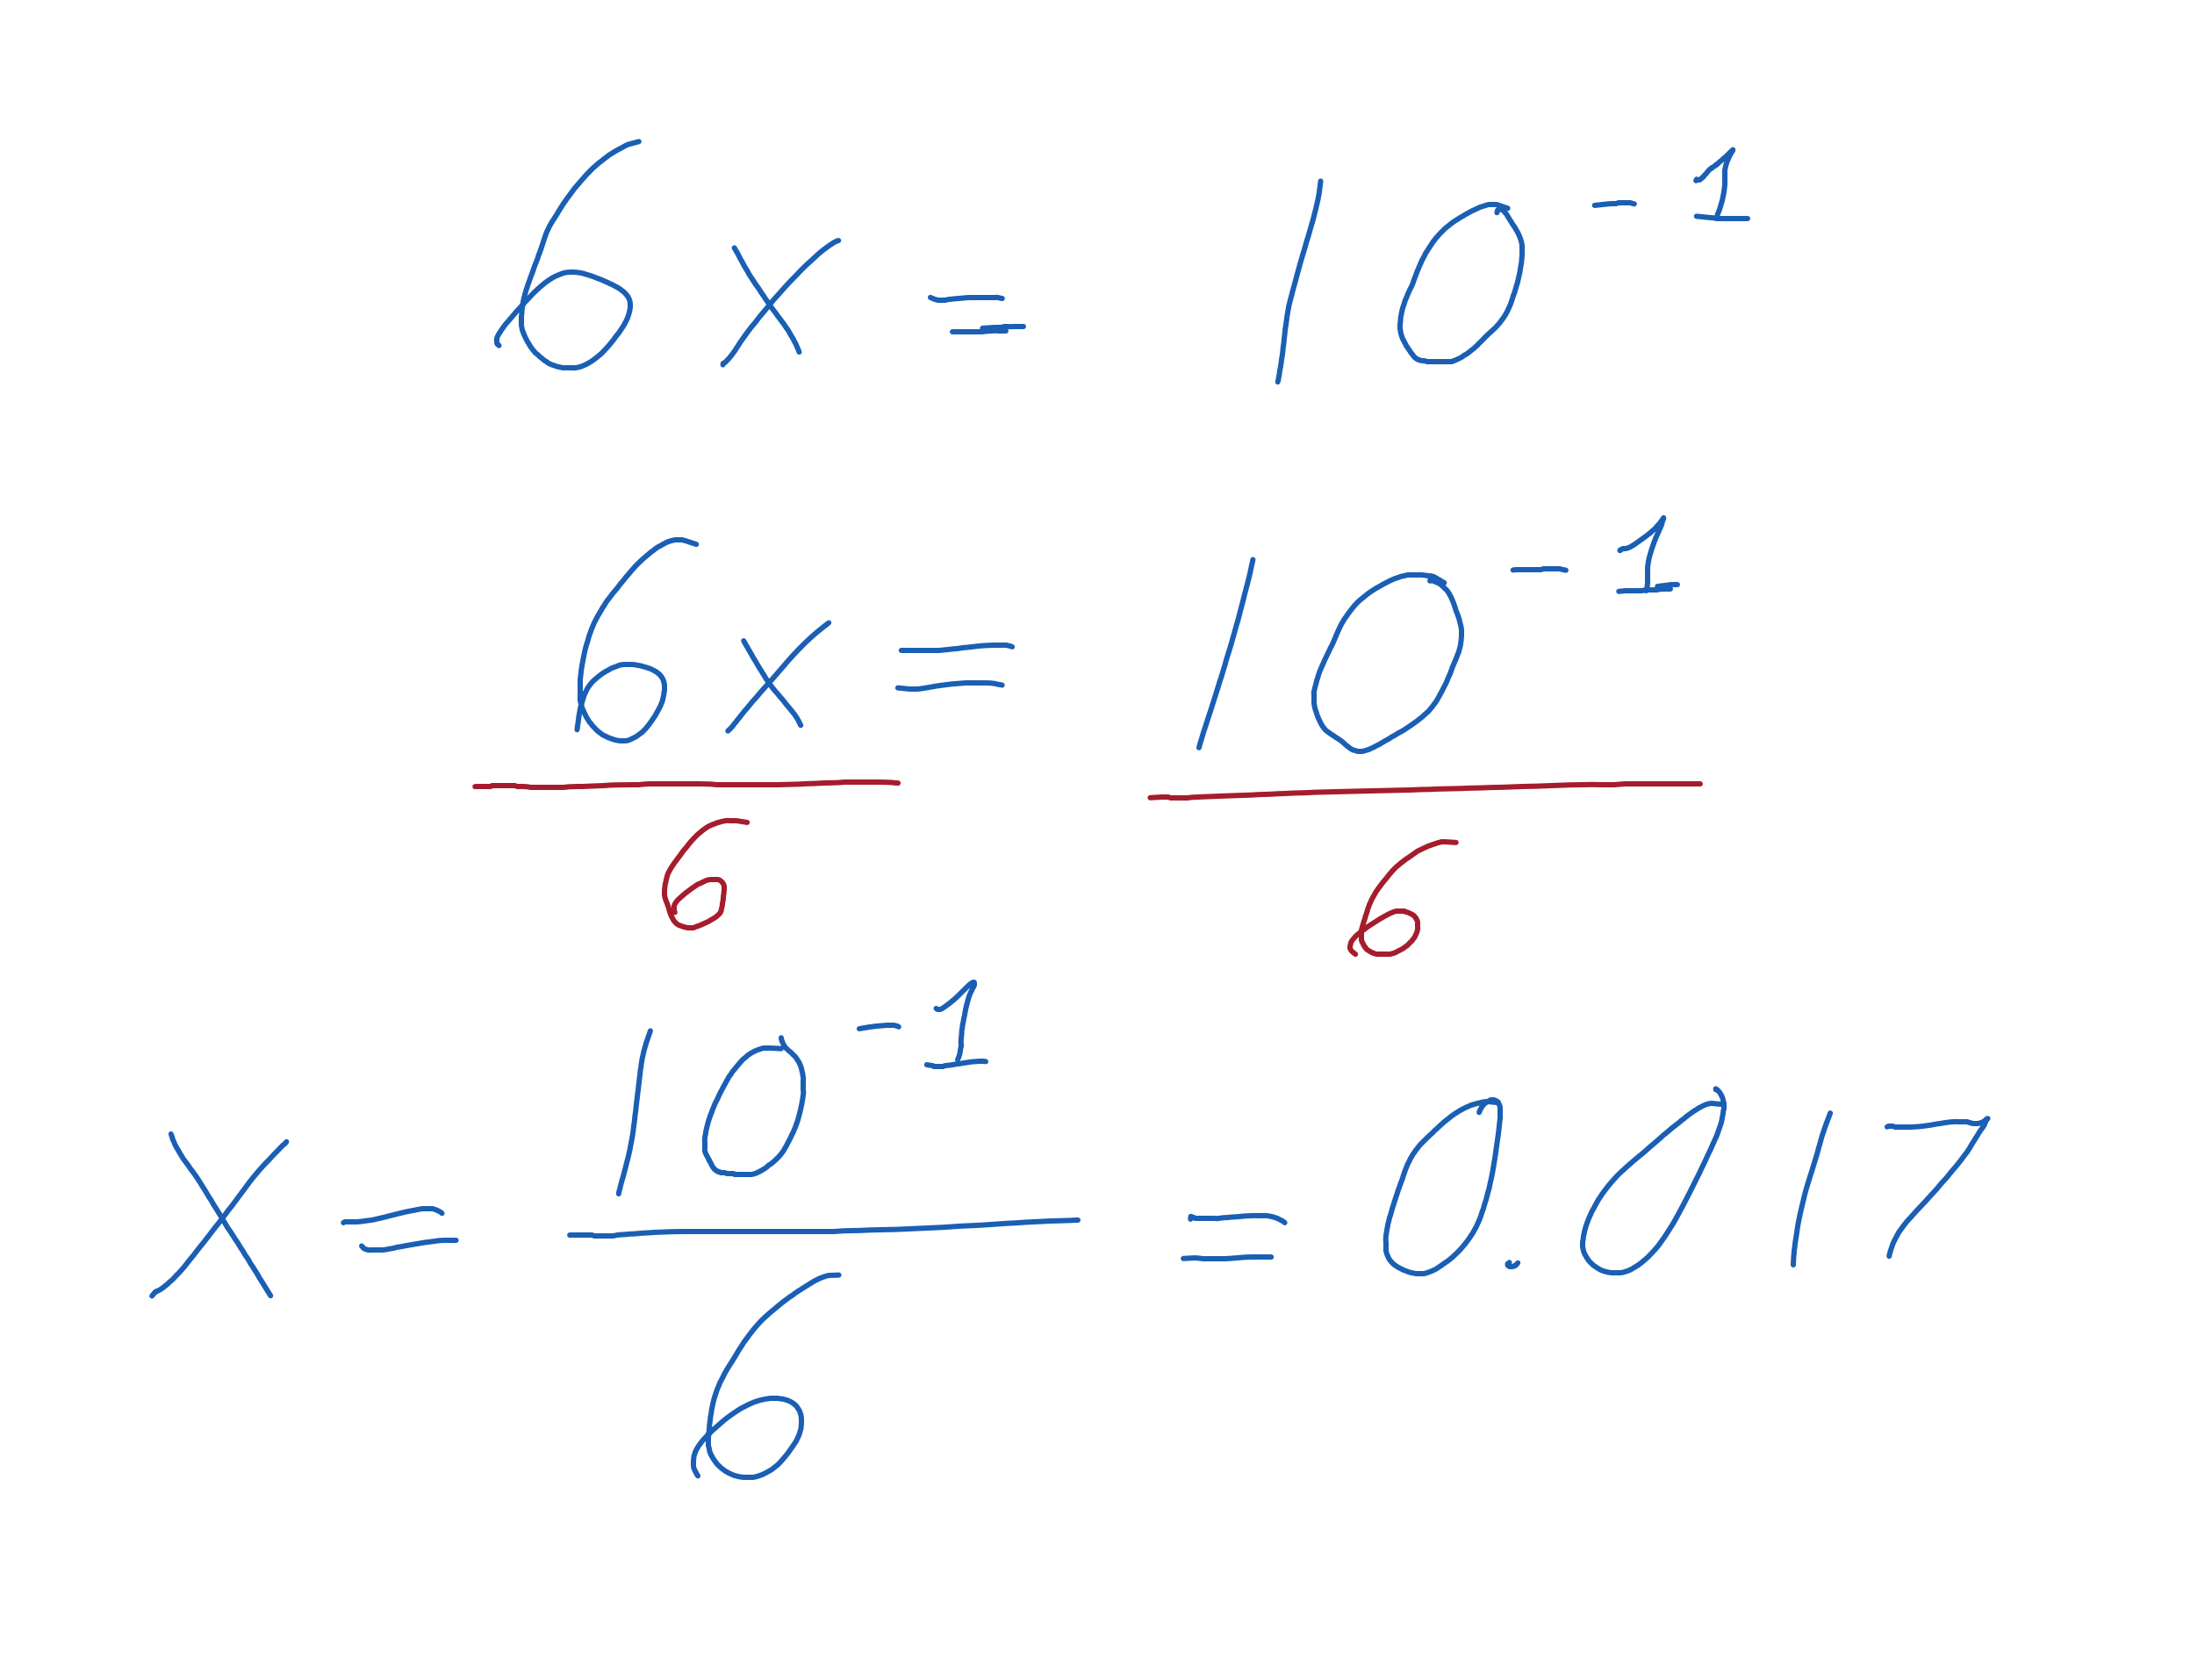 6x = 10⁻¹
6x = 10⁻¹
6 6
x = 10⁻¹/6 = 0.017